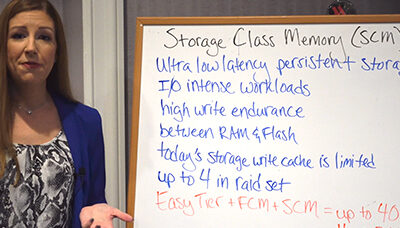 Storage Class Memory (SCM)
Ultra low latency persistent storag
I/O intense workloads
high write endurance
between RAM & Flash
today's storage write cache is limited
up to 4 in raid set
Easy Tier + FCM + SCM = up to 40